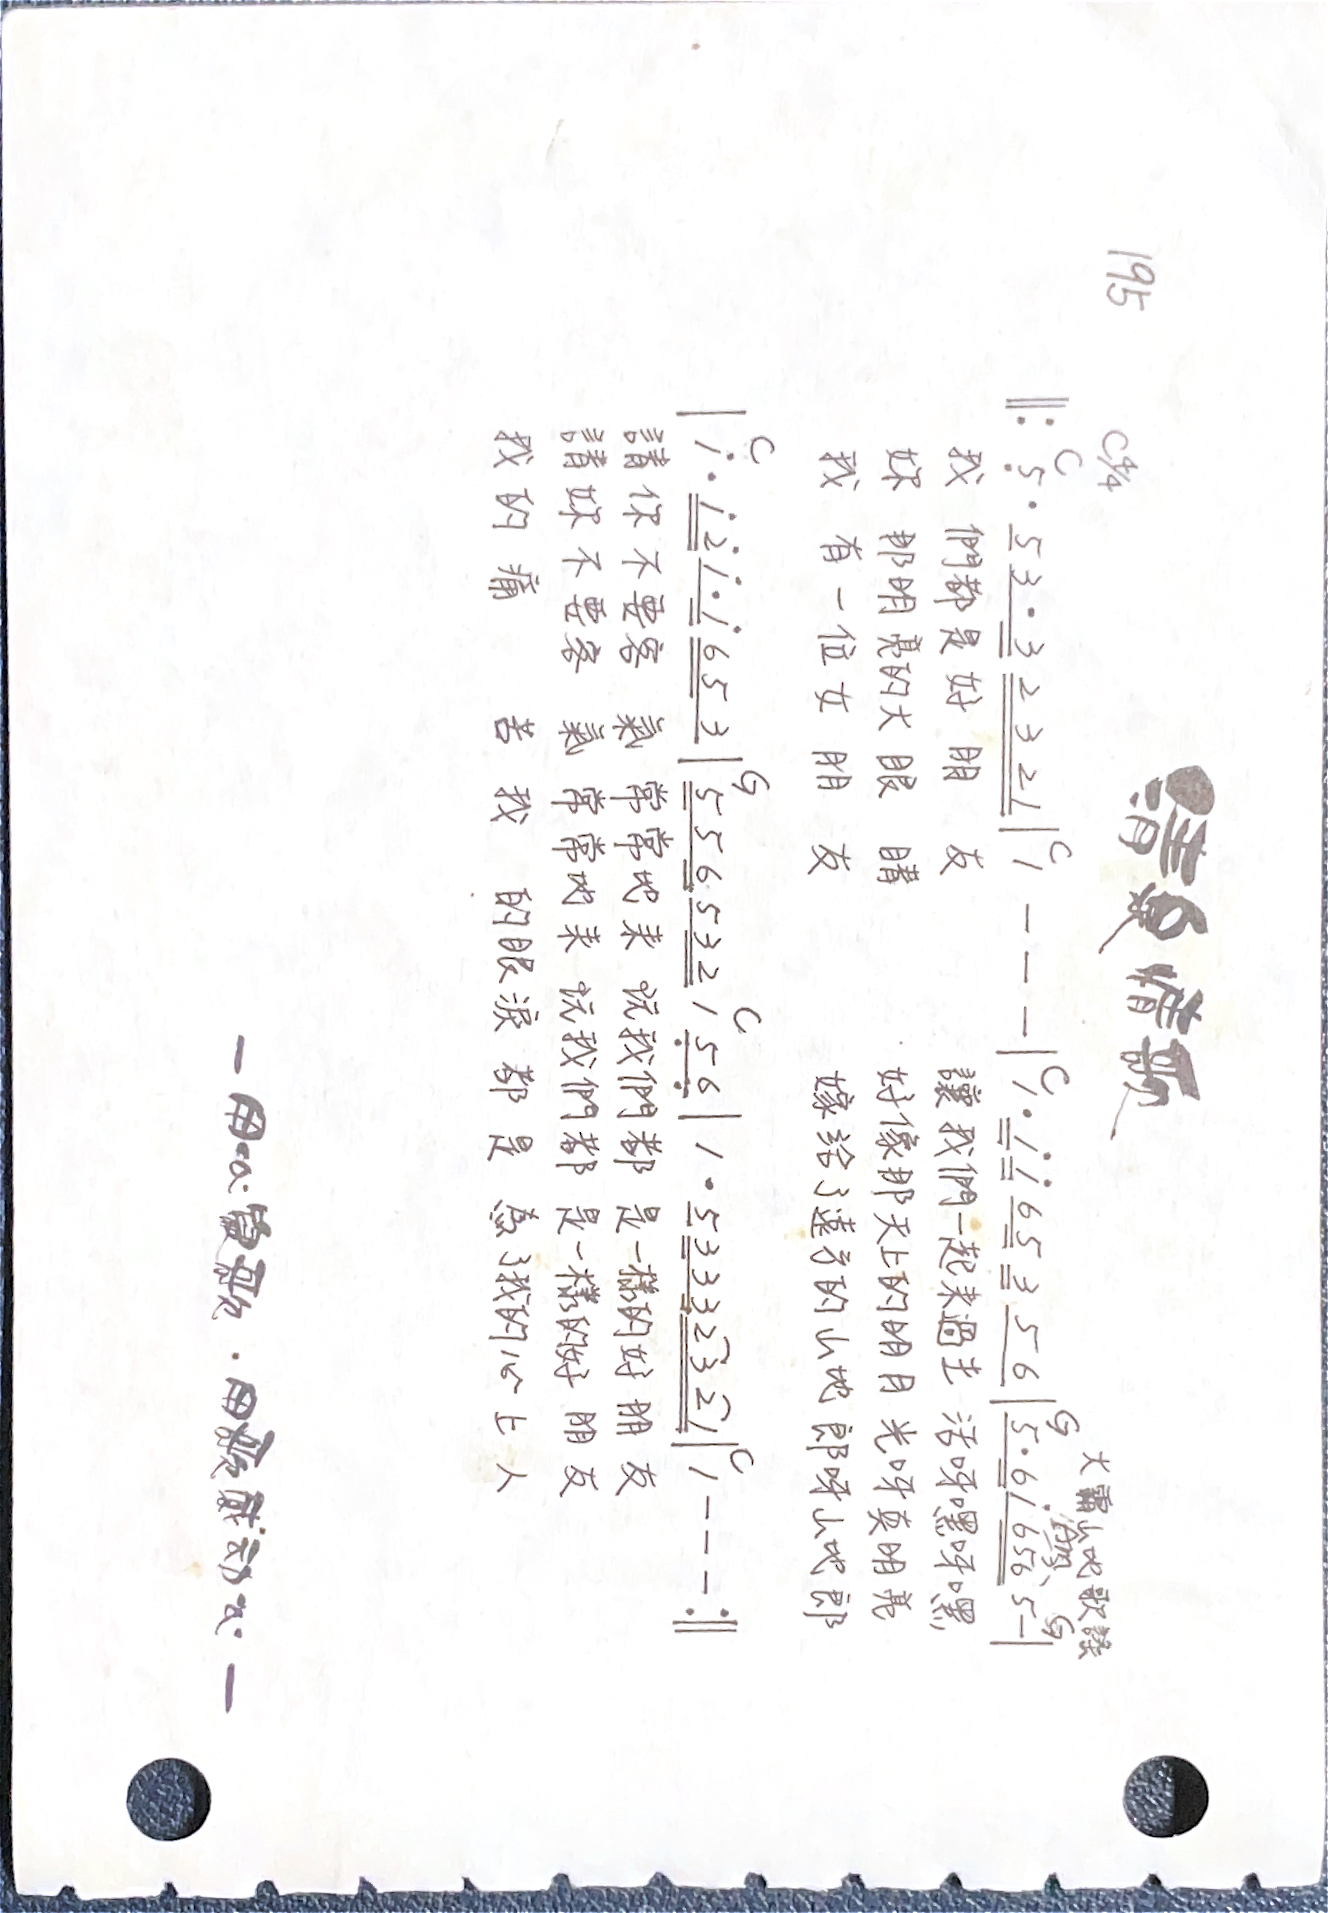 清泉情歌
195
C 4/4
大霸山地歌謠
C C C G Am G
‖: 5̣ · 5 3 · 3 2 3 2 1 | 1 - - - | 1 · i i 6 5 3 5 6 | 5 · 6 i 6 5 6 5 - |
我們都是好朋友 讓我們一起來過生活呀嘿呀嘿
妳那明亮的大眼睛 好像那天上的明月光呀真明亮
我有一位女朋友 嫁給了遠方的山地郎呀山地郎
C G C C
| i · i 2̇ i · i 6 5 3 | 5 5 6 5 3 2 1 5̣ 6̣ | 1 · 5 3 3 3 2 3 2 1 | 1 - - - :‖
請你不要客氣常常地來玩我們都是一樣的好朋友
請妳不要客氣常常地來玩我們都是一樣的好朋友
我的痛苦我的眼淚都是為了我的心上人
— 用心寫歌 · 用歌感动心 —